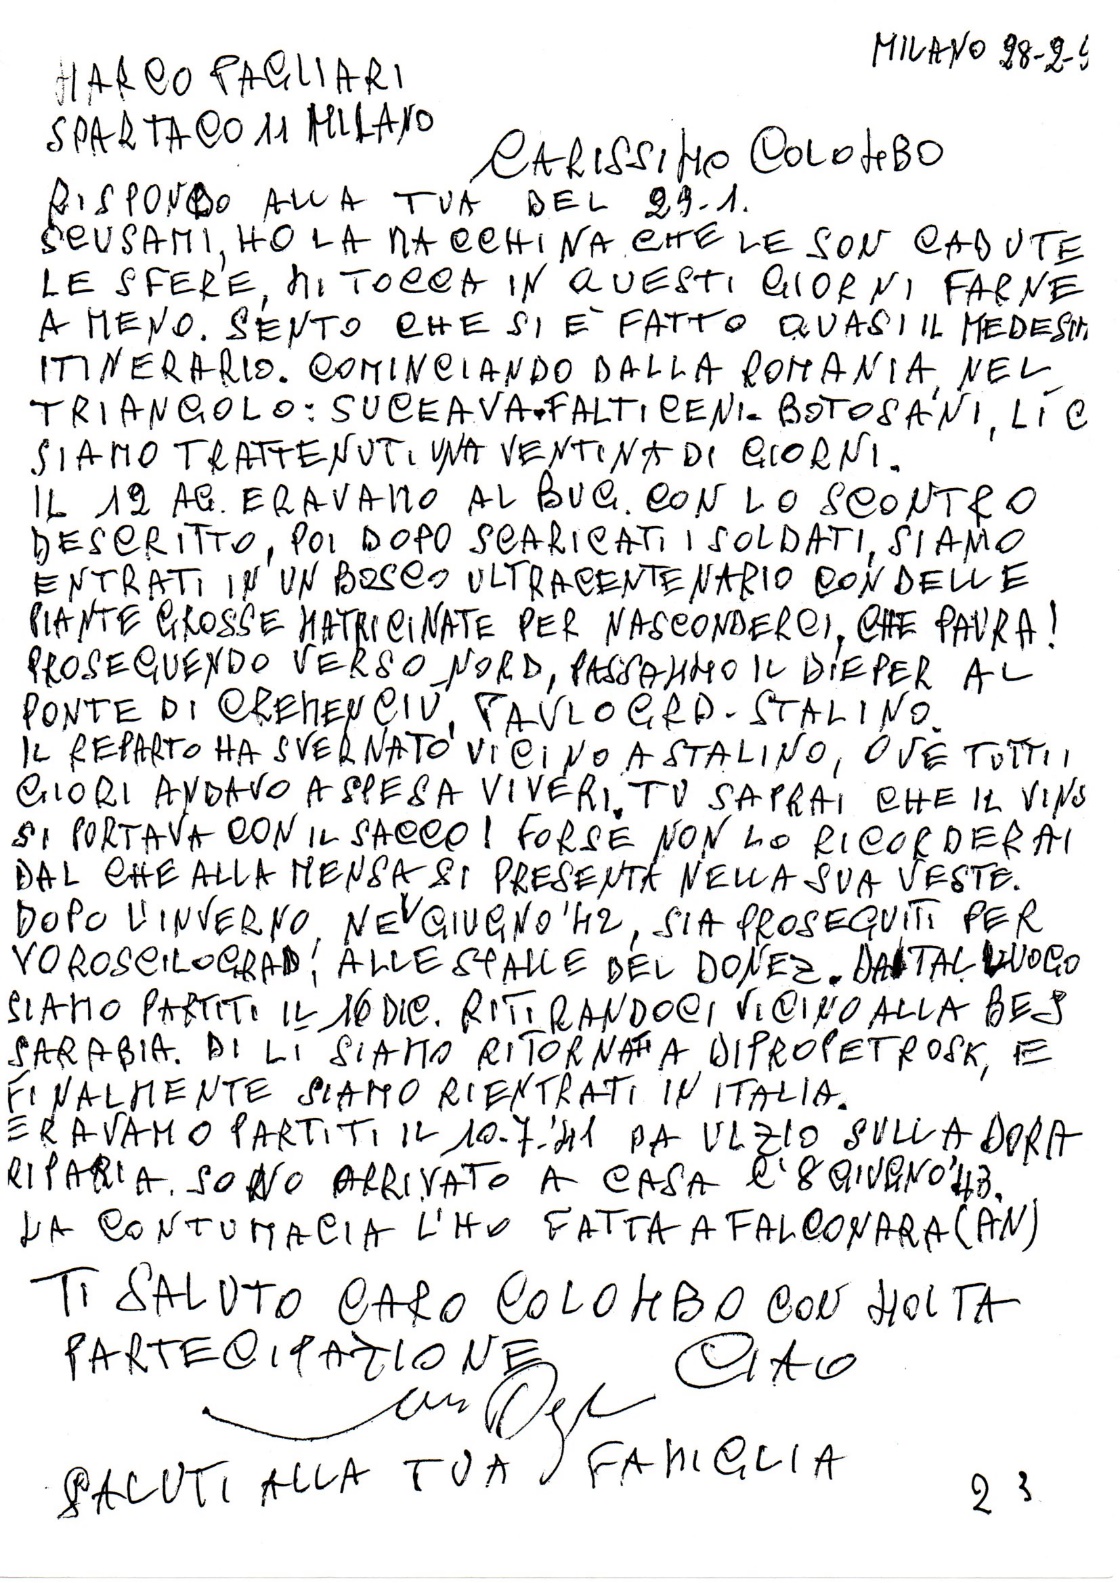 MILANO 28-2-
MARCO PAGLIARI
SPARTACO 11 MILANO
CARISSIMO COLOMBO
RISPONDO ALLA TUA DEL 29-1.
SCUSAMI, HO LA MACCHINA CHE LE SON CADUTE
LE SFERE, MI TOCCA IN QUESTI GIORNI FARNE
A MENO. SENTO CHE SI E` FATTO QUASI IL MEDESIM
ITINERARIO. COMINCIANDO DALLA ROMANIA, NEL
TRIANGOLO: SUCEAVA-FALTICENI-BOTOSANI, LI C
SIAMO TRATTENUTI UNA VENTINA DI GIORNI.
IL 12 AG. ERAVAMO AL BUG. CON LO SCONTRO
DESCRITTO, POI DOPO SCARICATI I SOLDATI, SIAMO
ENTRATI IN UN BOSCO ULTRACENTENARIO CON DELLE
PIANTE GROSSE MATRICINATE PER NASCONDERCI, CHE PAURA!
PROSEGUENDO VERSO NORD, PASSAMMO IL DIEPER AL
PONTE DI CREMENCIU, PAULOGRD-STALINO.
IL REPARTO HA SVERNATO VICINO A STALINO, OVE TUTTI I
GIORI ANDAVO A SPESA VIVERI. TU SAPRAI CHE IL VINO
SI PORTAVA CON IL SACCO! FORSE NON LO RICORDERAI
DAL CHE ALLA MENSA SI PRESENTA NELLA SUA VESTE.
DOPO L'INVERNO, NEL GIUGNO '42, SIA PROSEGUITI PER
VOROSCILOGRAD, ALLE SPALLE DEL DONEZ. DA TAL LUOGO
SIAMO PARTITI IL 16 DIC. RITIRANDOCI VICINO ALLA BES
SARABIA. DI LI SIAMO RITORNATI A DIPROPETROSK, E
FINALMENTE SIAMO RIENTRATI IN ITALIA.
ERAVAMO PARTITI IL 10-7-'41 DA ULZIO SULLA DORA
RIPARIA. SONO ARRIVATO A CASA L'8 GIUGNO '43.
LA CONTUMACIA L'HO FATTA A FALCONARA (AN)
TI SALUTO CARO COLOMBO CON MOLTA
PARTECIPAZIONE CIAO
SALUTI ALLA TUA FAMIGLIA
23